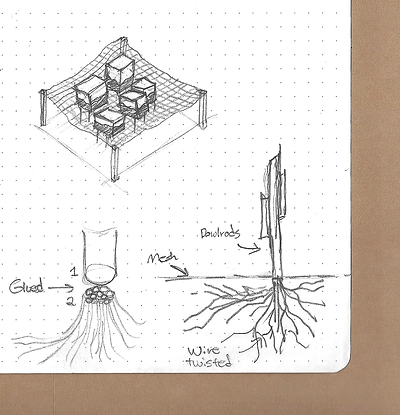 Dowlrods
Mesh
1
Glued
2
Wire
twisted